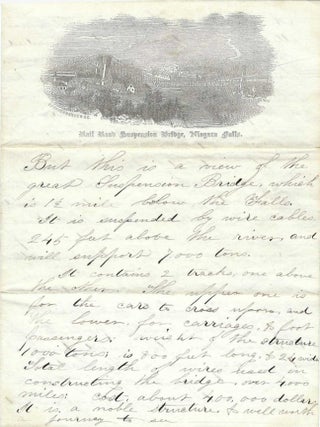 Rail Road Suspension Bridge, Niagara Falls.
But this is a view of the
great Suspension Bridge, which
is 1½ mile below the Falls.
It is suspended by wire cables
245 feet above the river, and
will support 7000 tons.
It contains 2 tracks, one above
the other. The upper one is
for the cars to cross upon, and
the lower, for carriages, & foot
passengers; weight of the structure
1000 tons; is 800 feet long, & 24 wide
Total length of wires used in
constructing the bridge, over 4000
miles: cost, about 400,000 dollars.
It is a noble structure, & well worth
a journey to see